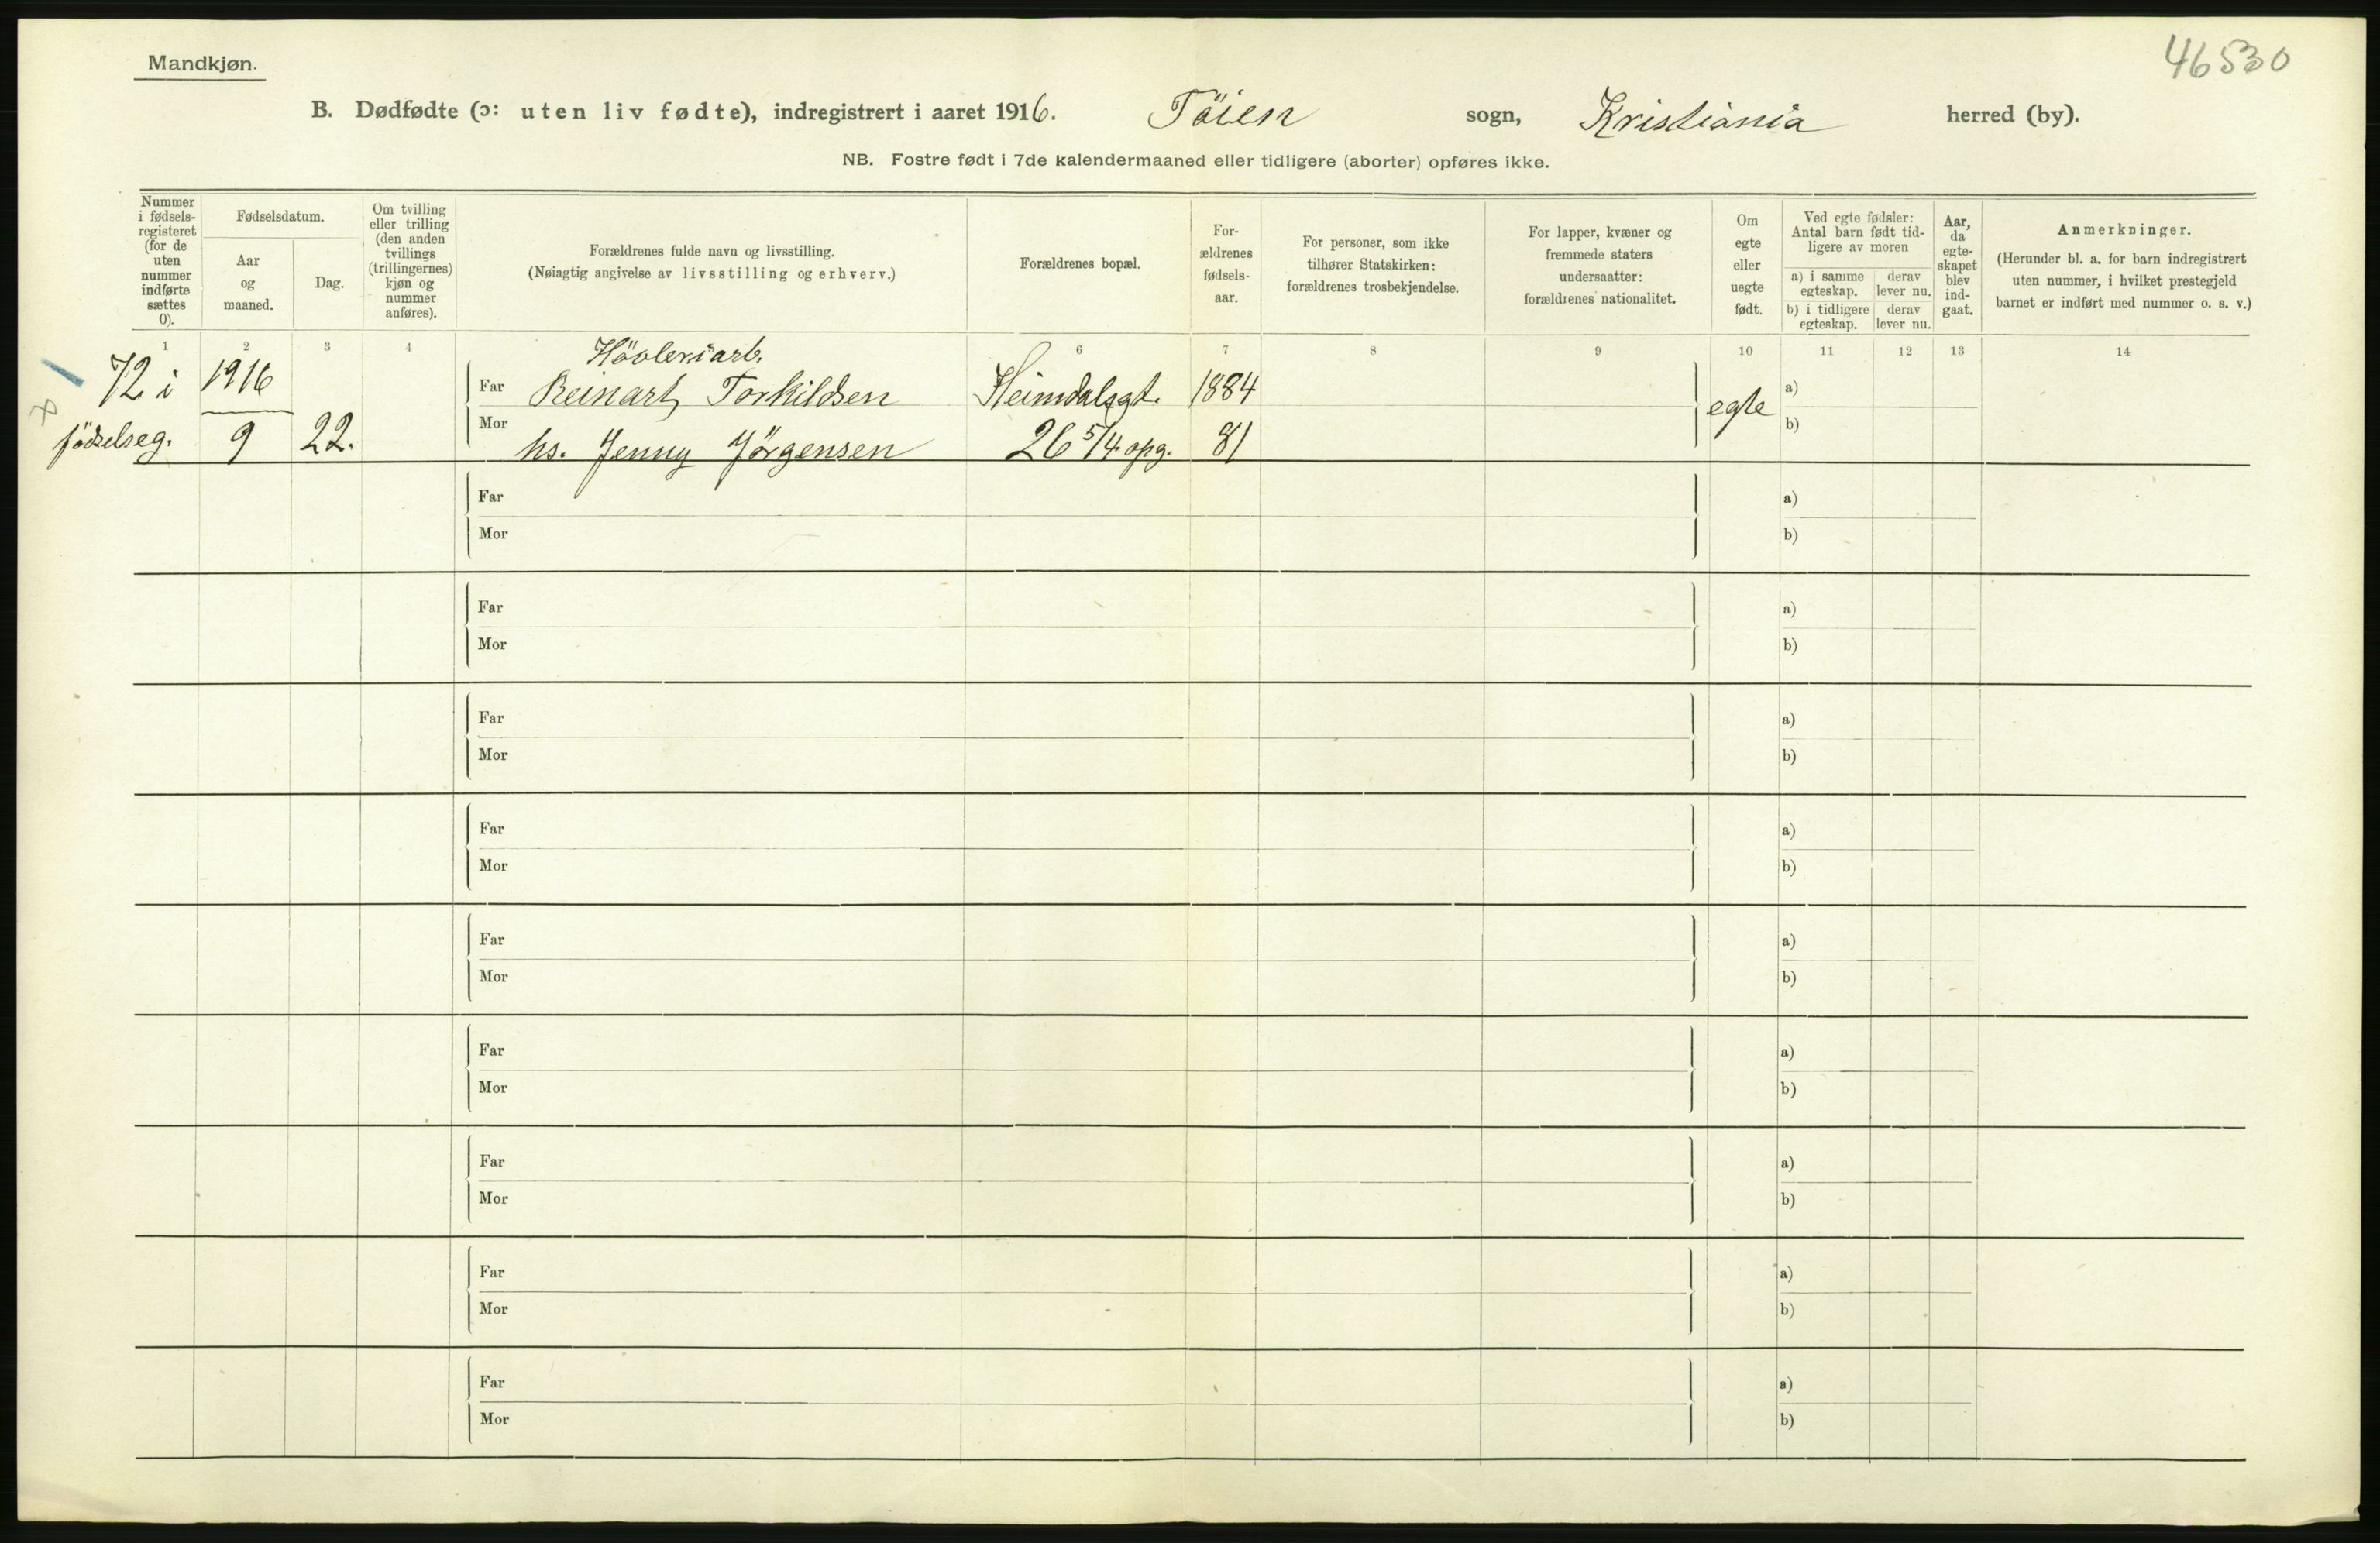 Mandkjøn.
46530
B. Dødfødte (ɔ: uten liv fødte), indregistrert i aaret 1916. Töien sogn, Kristiania herred (by).
NB. Fostre født i 7de kalendermaaned eller tidligere (aborter) opføres ikke.
Nummer i fødsels-registeret (for de uten nummer indførte sættes 0).
Fødselsdatum.
Aar og maaned.
Dag.
Om tvilling eller trilling (den anden tvillings (trillingernes) kjøn og nummer anføres).
Forældrenes fulde navn og livsstilling.
(Nøiagtig angivelse av livsstilling og erhverv.)
Forældrenes bopæl.
For-ældrenes fødsels-aar.
For personer, som ikke tilhører Statskirken: forældrenes trosbekjendelse.
For lapper, kvæner og fremmede staters undersaatter: forældrenes nationalitet.
Om egte eller uegte født.
Ved egte fødsler: Antal barn født tid-ligere av moren
a) i samme egteskap. derav lever nu.
b) i tidligere egteskap. derav lever nu.
Aar, da egte-skapet blev ind-gaat.
Anmerkninger.
(Herunder bl. a. for barn indregistrert uten nummer, i hvilket prestegjeld barnet er indført med nummer o. s. v.)
1 2 3 4 6 7 8 9 10 11 12 13 14
Hövleriarb.
72 i 1916 Far Reinart Torkildsen Heimdalsgt. 1884 egte a)
födselseg. 9 22. Mor hs. Jenny Jörgensen 26 5/4 opg. 81 b)
Far a)
Mor b)
Far a)
Mor b)
Far a)
Mor b)
Far a)
Mor b)
Far a)
Mor b)
Far a)
Mor b)
Far a)
Mor b)
Far a)
Mor b)
Far a)
Mor b)